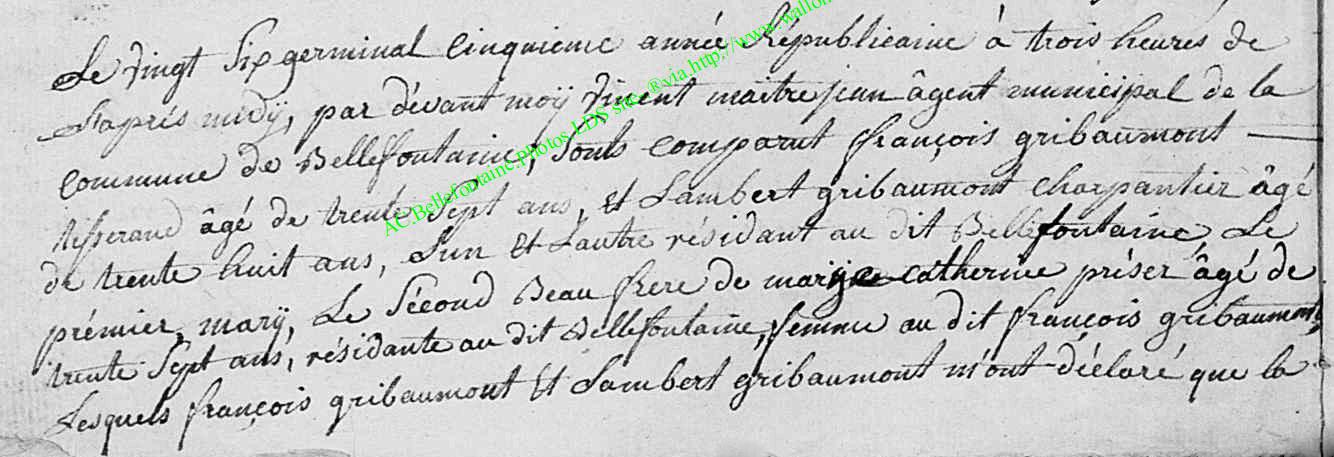 Le vingt Six germinal Cinquieme année Républicaine à trois heures de
L'aprés midÿ, par dévant moÿ Vincent maitrejean âgent municipal de la
Commune de Bellefontaine, Sonts Comparut françois gribaumont
tisserand âgé de trente Sept ans, Et Lambert gribaumont Charpantier âgé
de trente huit ans, L'un Et Lautre résidant au dit Bellefontaine, Le
prémier, marÿ, Le Sécond Beau frere de marye catherine préser âgé de
trente Sept ans, résidante au dit Bellefontaine, femme au dit françois gribaumont,
Lesquels françois gribaumont Et Lambert gribaumont m'ont déclaré que la
AC.Bellefontaine.Photos LDS sur ®via.http://www.wallon